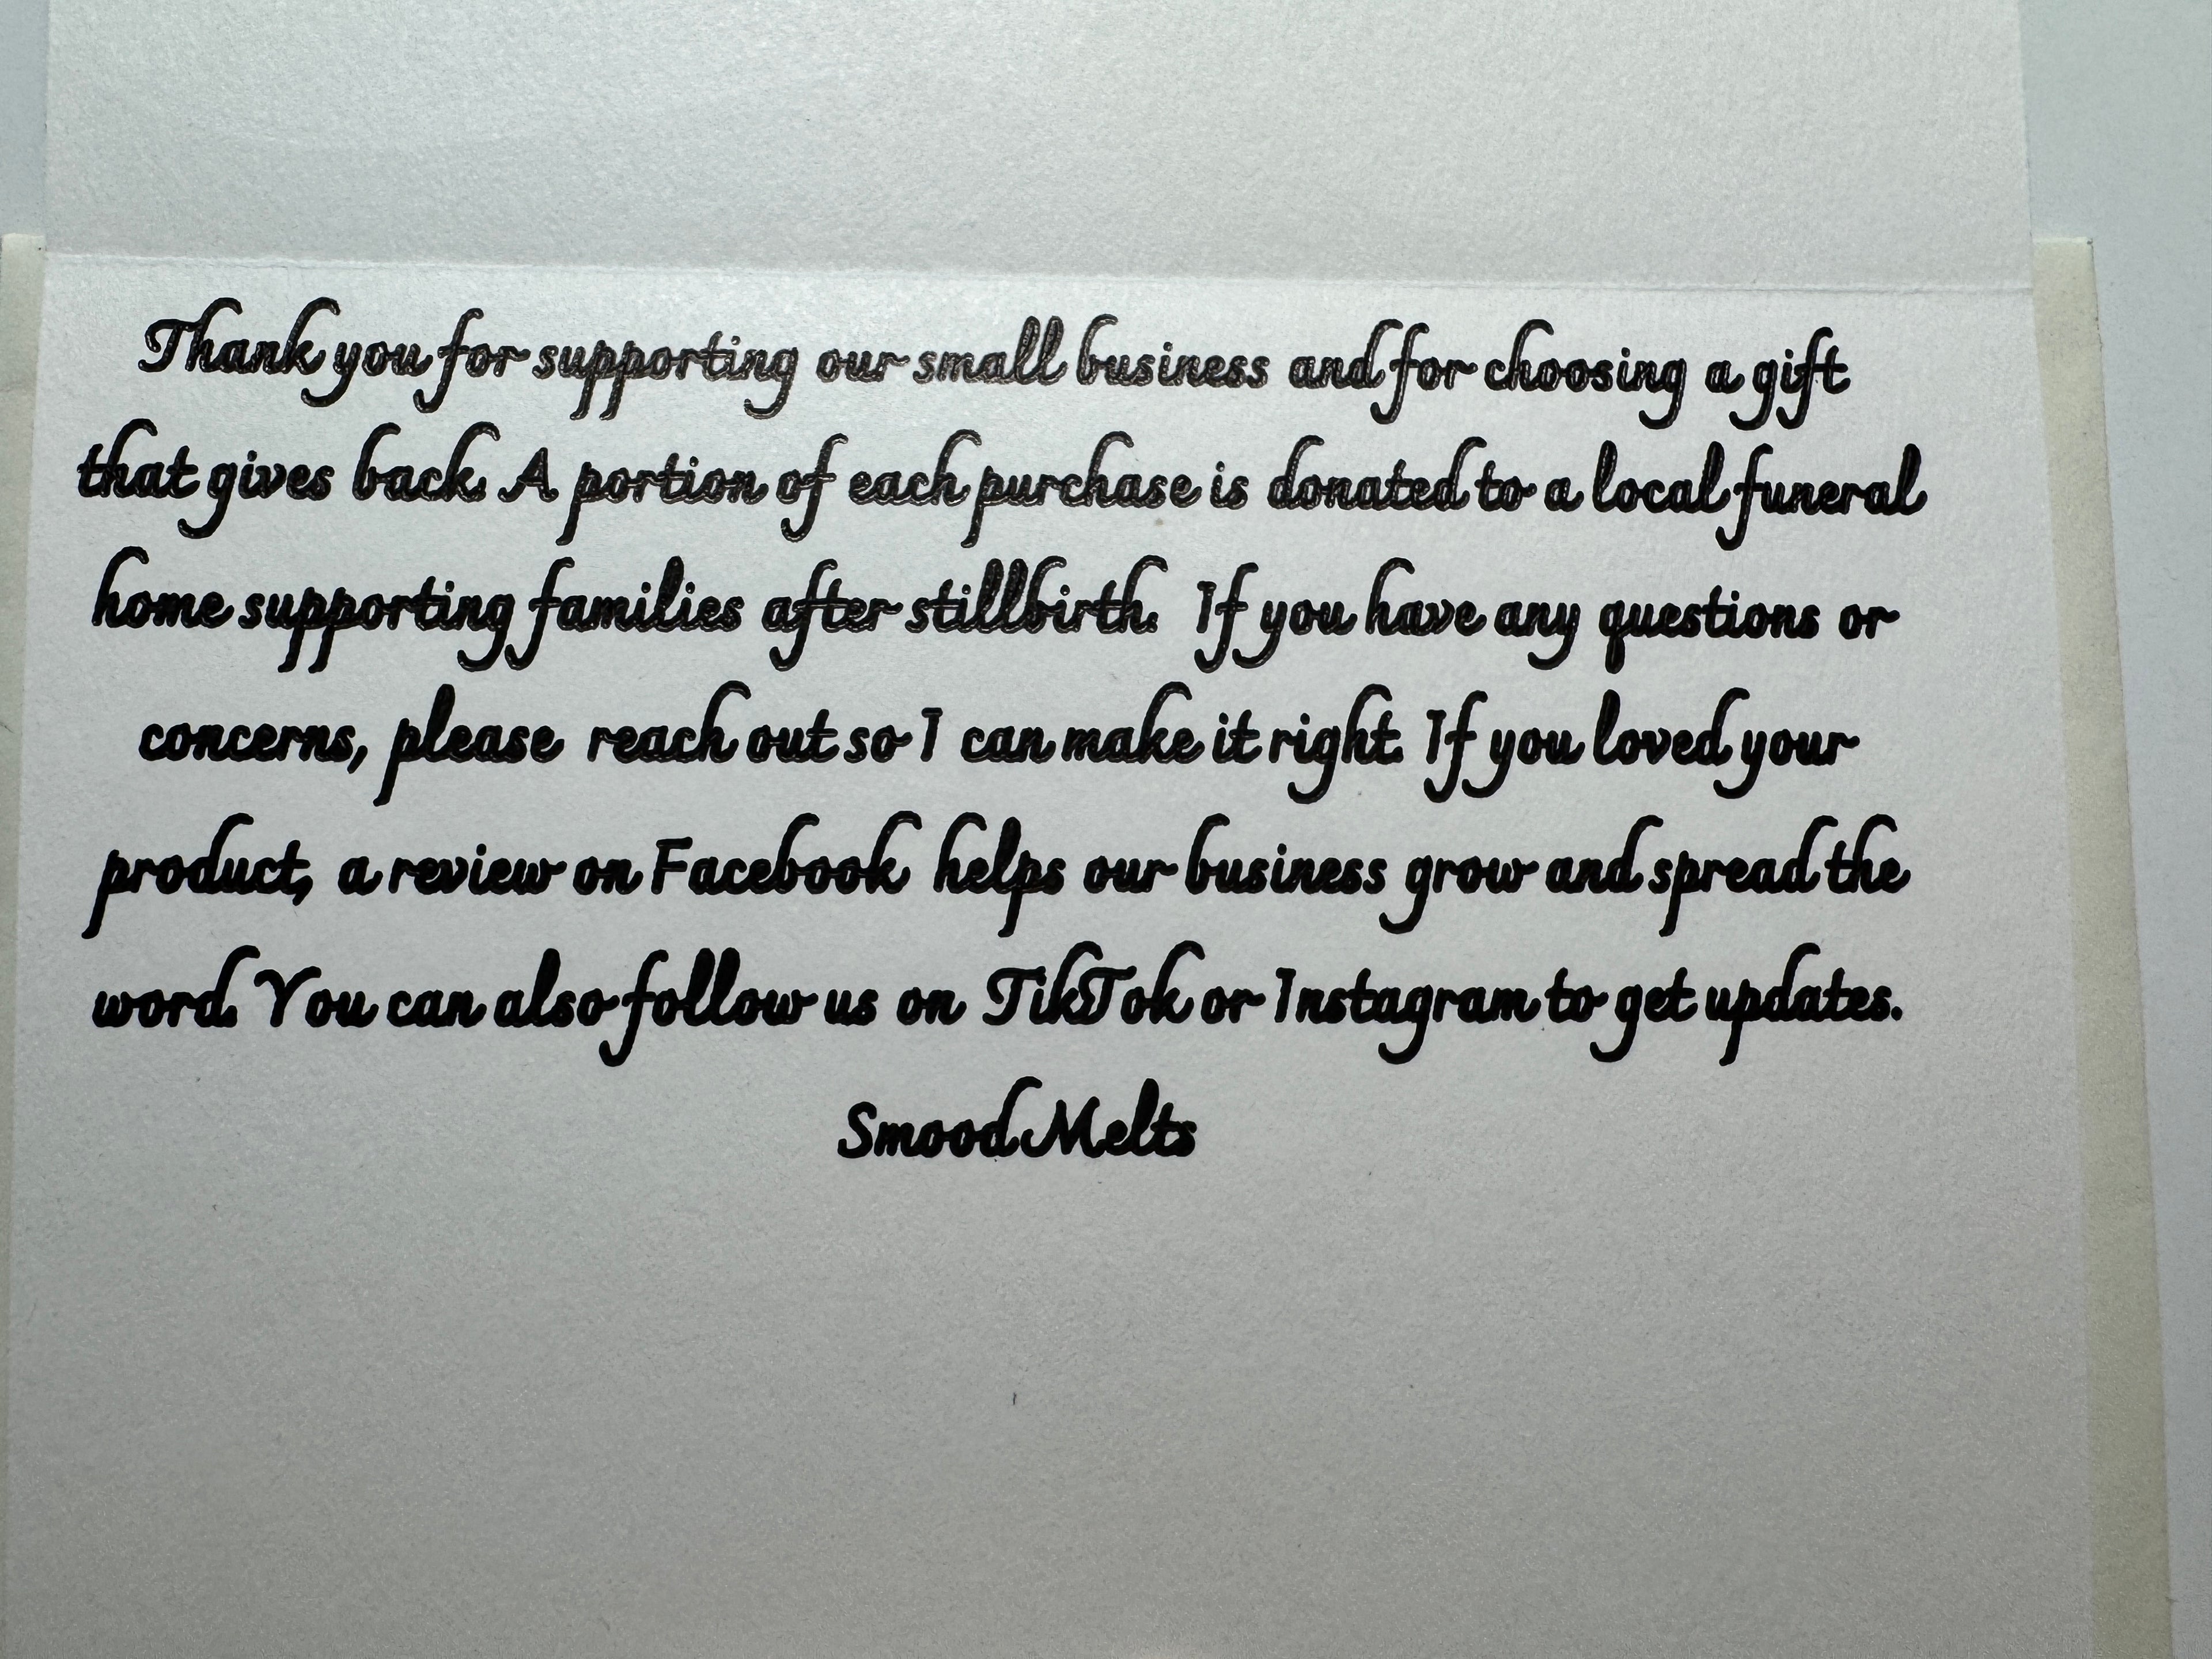 Thank you for supporting our small business and for choosing a gift
that gives back. A portion of each purchase is donated to a local funeral
home supporting families after stillbirth. If you have any questions or
concerns, please reach out so I can make it right. If you loved your
product, a review on Facebook helps our business grow and spread the
word. You can also follow us on TikTok or Instagram to get updates.
Smood Melts